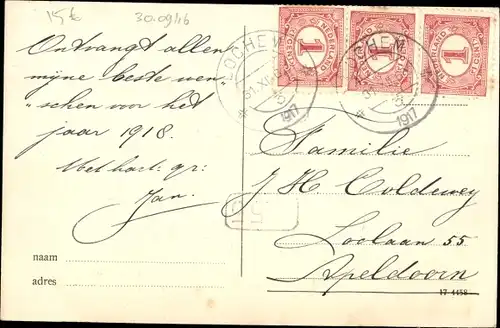 15 €
30.09/16
Ontvangt allen
mijne beste wen
schen voor het
jaar 1918.
Veel hart: gr:
Jan.
naam
adres
LOCHEM
31.XII
1917
1
NEDERLAND
1
NEDERLAND
1
NEDERLAND
LOCHEM
1917
Familie
J H Coldewey
Loolaan 55
Apeldoorn
17 4458